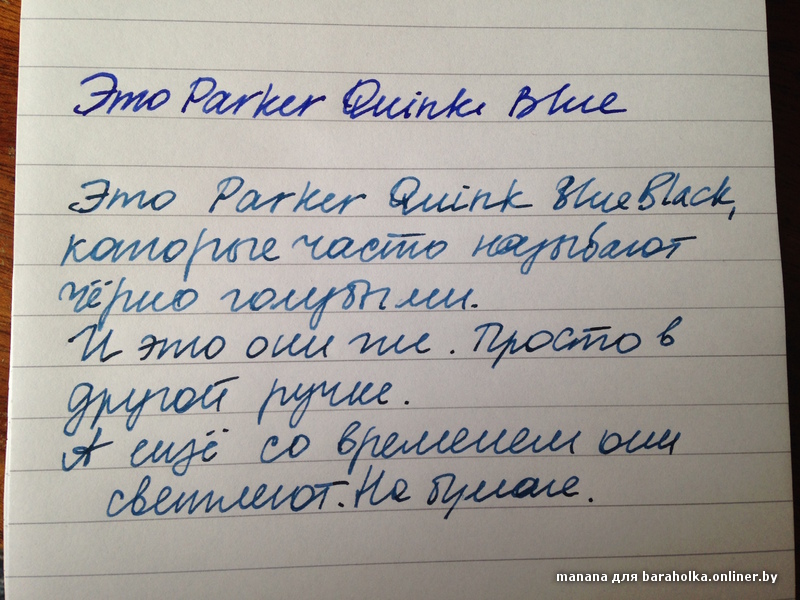 Это Parker Quink Blue
Это Parker Quink Blue Black,
которые часто называют
чёрно голубыми.
И это они же. Просто в
другой ручке.
А ещё со временем они
светлеют. На бумаге.
manana для baraholka.onliner.by